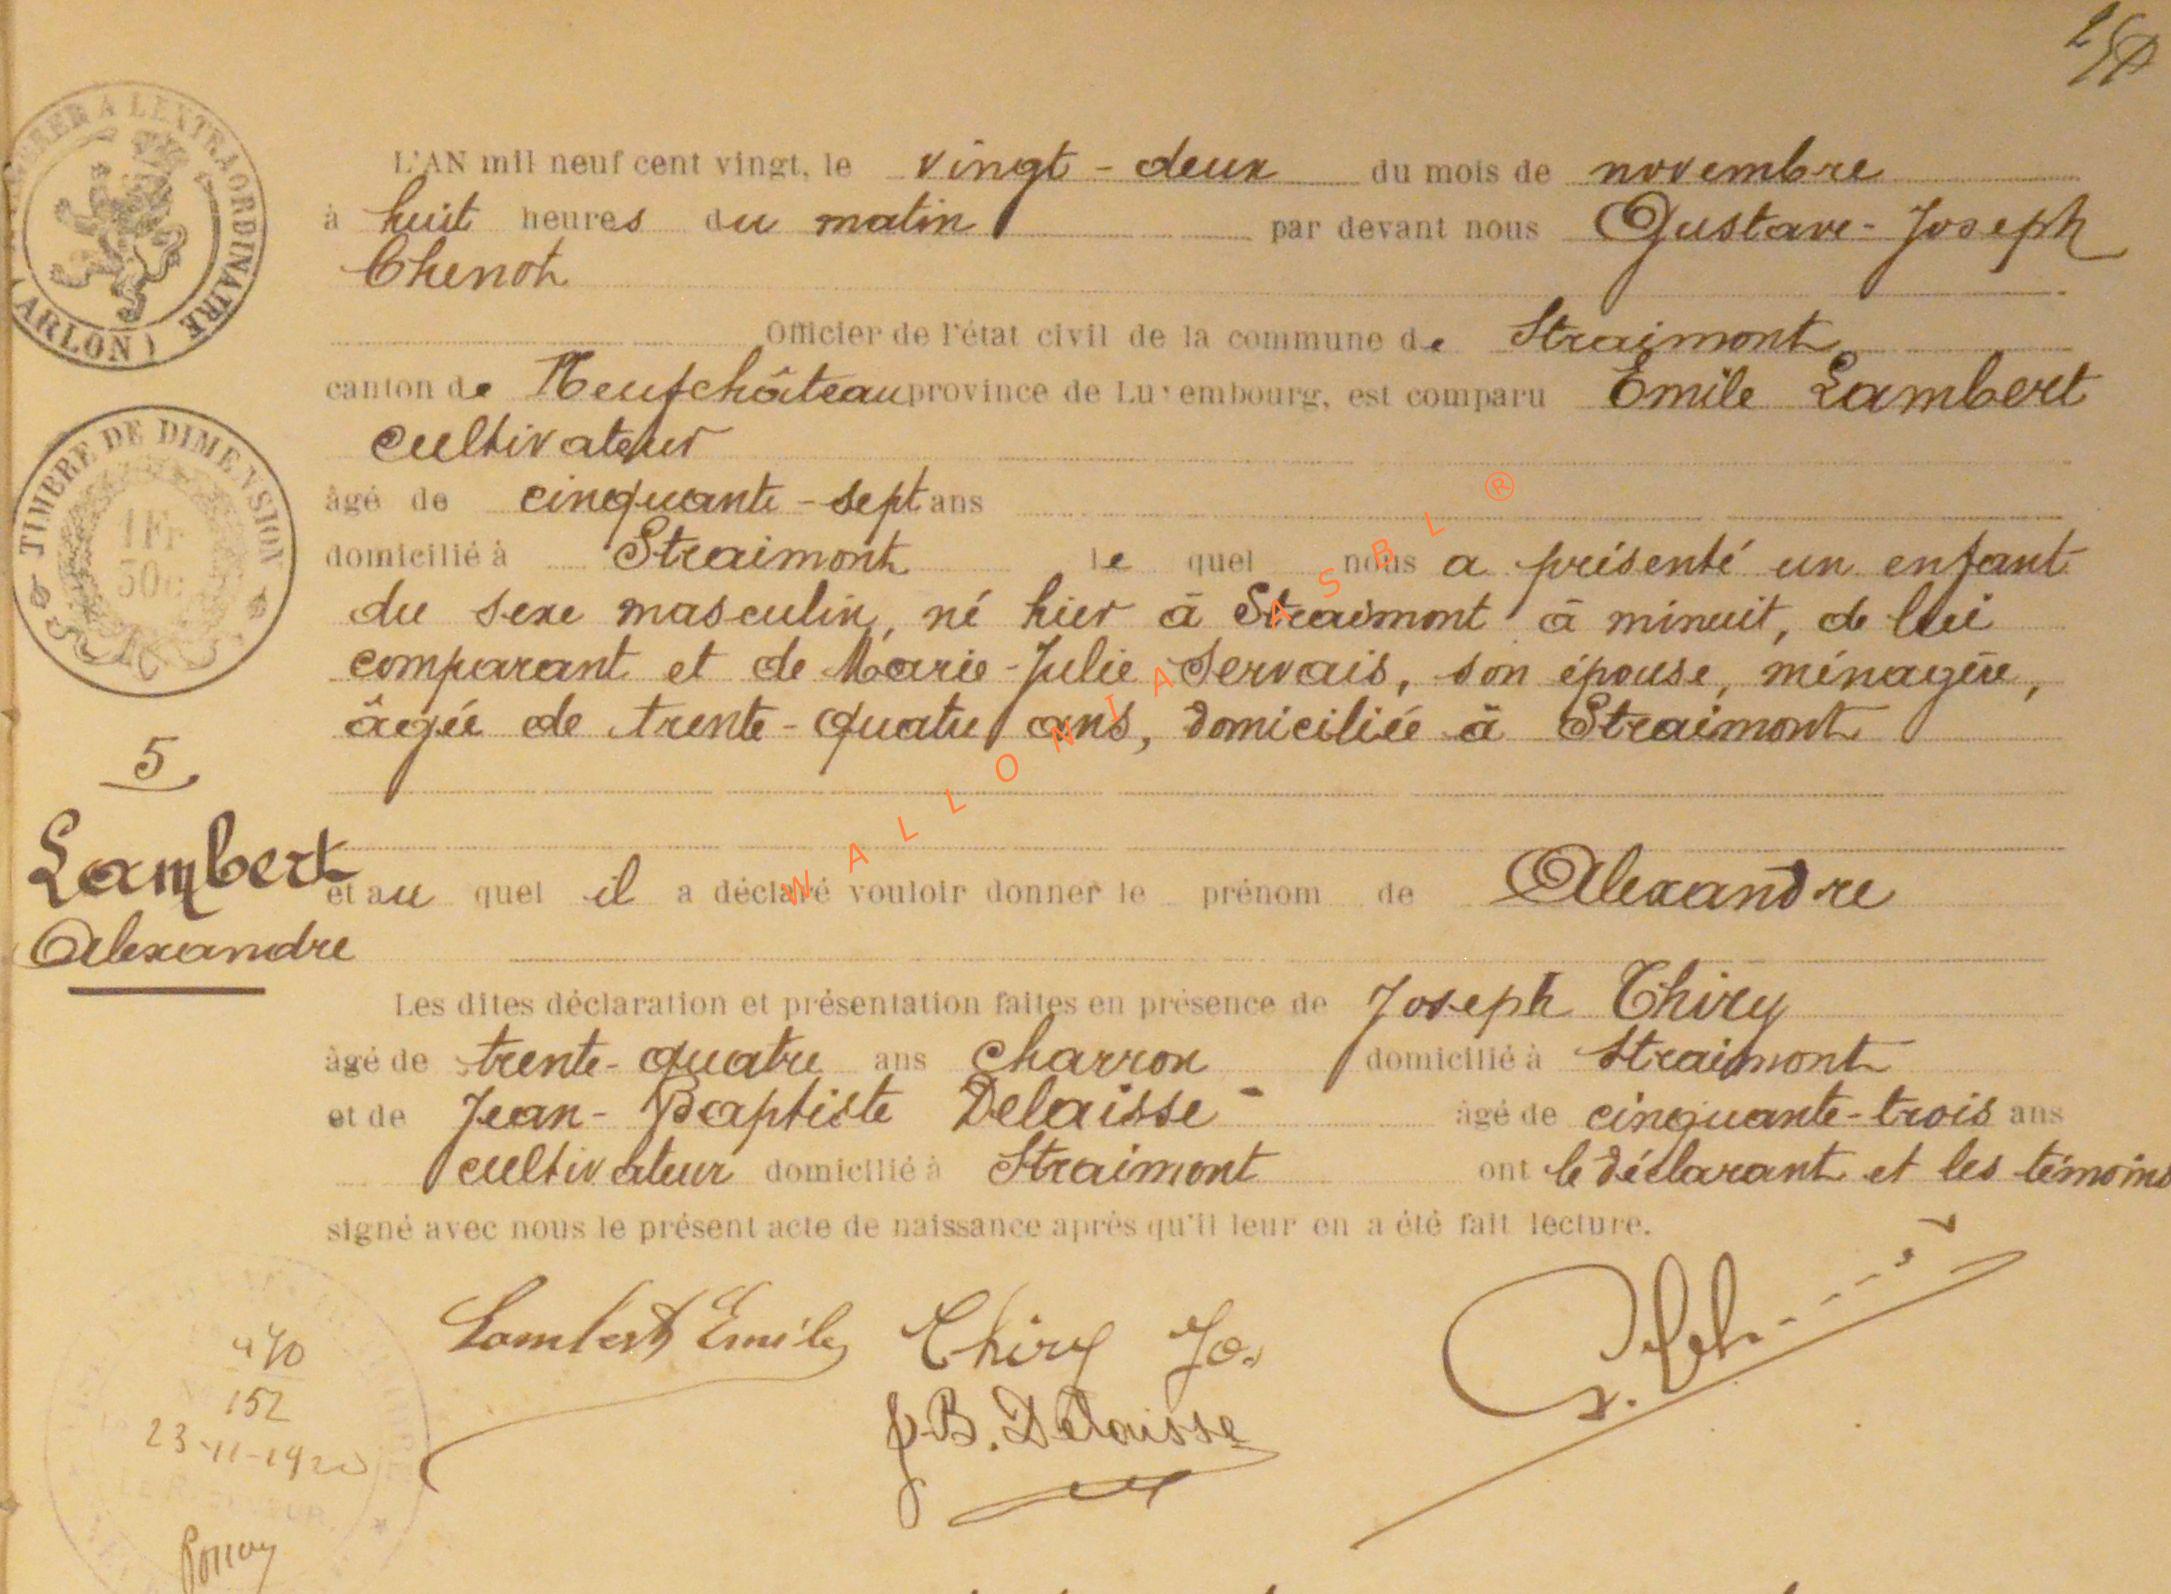 L'AN mil neuf cent vingt, le vingt-deux du mois de novembre
à huit heures du matin par devant nous Gustave-Joseph
Chenot
Officier de l'état civil de la commune de Straimont
canton de Neufchâteau province de Luxembourg, est comparu Emile Lambert
cultivateur
âgé de cinquante-sept ans
domicilié à Straimont lequel nous a présenté un enfant
du sexe masculin, né hier à Straimont à minuit, de lui
comparant et de Marie-Julie Servais, son épouse, ménagère,
âgée de trente-quatre ans, domiciliée à Straimont
5
Lambert
Alexandre
et au quel il a déclaré vouloir donner le prénom de Alexandre
Les dites déclaration et présentation faites en présence de Joseph Thiry
âgé de trente-quatre ans charron domicilié à Straimont
et de Jean-Baptiste Delaisse âgé de cinquante-trois ans
cultivateur domicilié à Straimont ont le déclarant et les témoins
signé avec nous le présent acte de naissance après qu'il leur en a été fait lecture.
Lambert Emile Thiry Jo.
J.B. Delaisse
152
23-11-1920
A L'EXTRAORDINAIRE
(ARLON)
TIMBRE DE DIMENSION
1 Fr
50c
WALLONIA ASBL ®